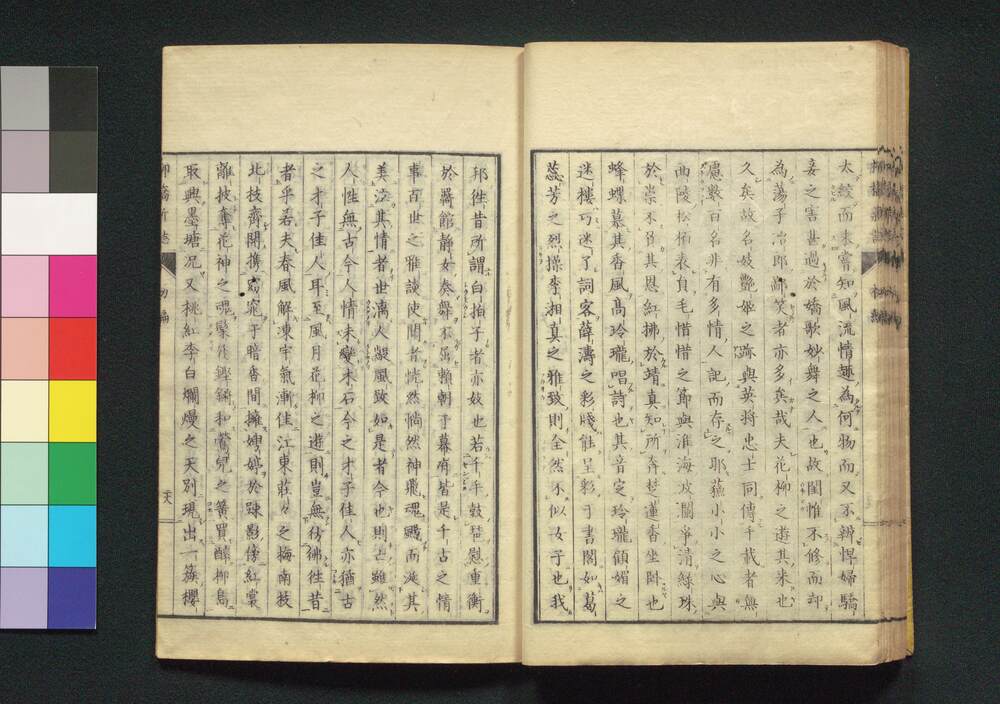 太絃而未嘗知風流情趣為何物而又不辨悍婦驕
妾之害甚過於嬌歌妙舞之人也故閨惟不修而却
為蕩子冶郎鄙笑者亦多矣哉夫花柳之遊其来也
久矣故名妓艷姬之跡與英将忠士同傳千載者無
慮數百名非有多情人記而存之耶蘓小小之心與
西陵松栢表貞毛惜惜之節與淮海波瀾爭清緑珠
於崇不負其恩紅拂於靖真知所奔楚蓮香坐卧也
蜂蝶慕其香風高玲瓏唱詩也其音定玲瓏顧媚之
迷楼巧迷了詞客薛濤之彩牋能呈彩于書閣如葛
蕊芳之烈操李湘真之雅致則全然不似女子也我
邦徃昔所謂白拍子者亦妓也若千手鼓琶慰重衡
於羇館静女奏舞不屈頼朝于幕府皆是千古之情
事百世之雅談使聞者恍然惝然神飛魂颺而涎其
美泣其情者世漓人凝風致如是者今也則亡雖然
人性無古今人情未變木石今之才子佳人亦猶古
之才子佳人耳至風月花柳之遊則豈無彷彿徃昔
者乎若夫春風解凍宇氣漸佳江東荘々之梅南枝
北枝齊開携窈窕于暗香間擁嫂婷於踈影傍紅裳
離披奪花神之魂鬟絲鏗鏘和鶯兒之簧買醉柳島
取興墨塘况又桃紅李白爛熳之天別現出一簇櫻
柳橋新誌
初編